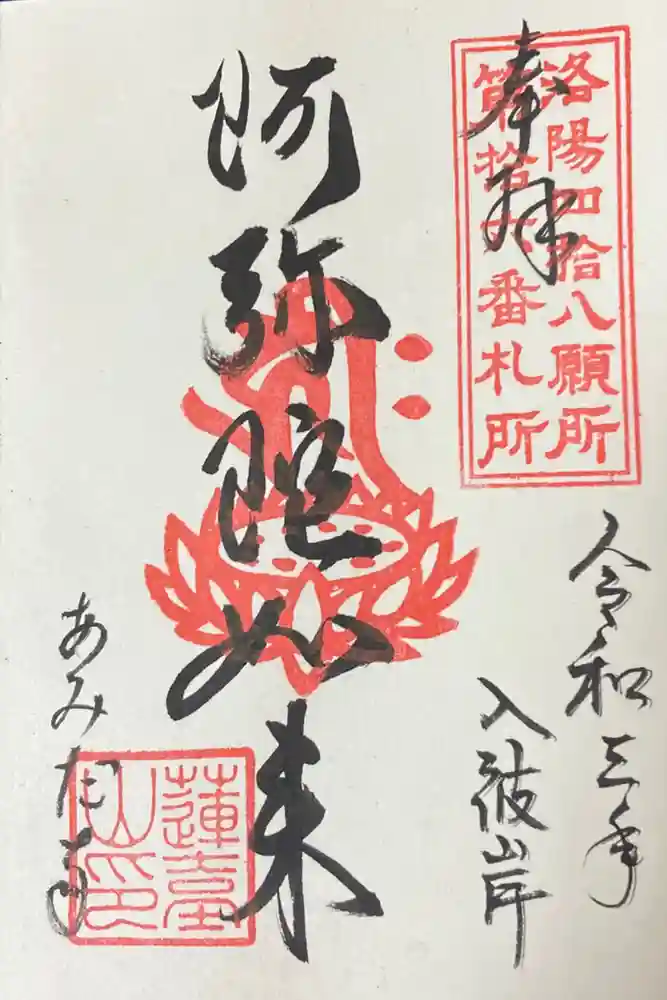 奉拝
洛陽四拾八願所
第拾六番札所
令和三年
入彼岸
阿弥陀如来
あみだ寺
蓮臺
山印